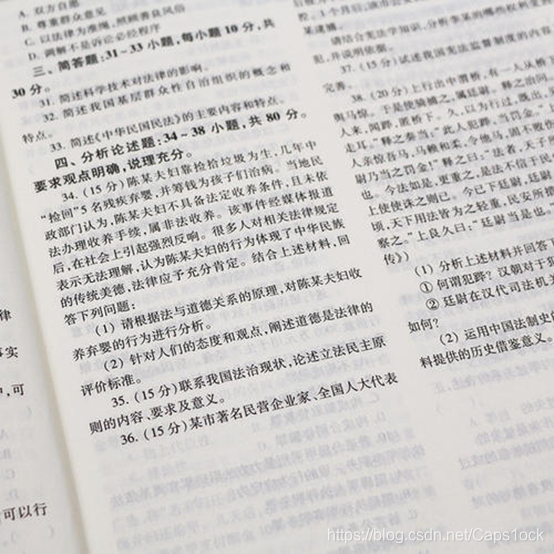 A. 双方自愿
B. 尊重群众意见
C. 以法律为准绳,照顾善良风俗
D. 调解不是诉讼必经程序
三、简答题:31~33 小题,每小题 10 分,共
30 分。
31. 简述科学技术对法律的影响。
32. 简述我国基层群众性自治组织的概念和
特点。
33. 简述《中华民国民法》的主要内容和特点。
四、分析论述题:34~38 小题,共 80 分。
要求观点明确,说理充分。
34. (15 分)陈某夫妇靠捡拾垃圾为生,几年中
“捡回”5 名残疾弃婴,并筹钱为孩子们治病。当地民
政部门认为,陈某夫妇不具备法定收养条件,且未依
法办理收养手续,属非法收养。该事件经媒体报道
后,在社会上引起强烈反响。很多人对相关法律规定
表示无法理解,认为陈某夫妇的行为体现了中华民族
的传统美德,法律应予充分肯定。结合上述材料,回
答下列问题:
(1) 请根据法与道德关系的原理,对陈某夫妇收
养弃婴的行为进行分析。
(2) 针对人们的态度和观点,阐述道德是法律的
评价标准。
35. (15 分)联系我国法治现状,论述立法民主原
则的内容、要求及意义。
36. (15 分)某市著名民营企业家、全国人大代表
请结合宪法学知识,分析李某的哪些权利
犯,并说明依据。
37. (15 分)试述我国宪法监督制度的内容
完善。
38. (20 分)上行出中渭桥,有一人从桥下
惊马。于是使骑捕之,属廷尉。释之治问
人来,闻跸,匿桥下。久,以为行过,既出,
走耳。”释之奏当:“此人犯跸,当罚金。”
人亲惊吾马,马赖和柔,令他马,固不败伤
尉乃当之罚金!”释之曰:“法者,天子
也。今法如是,更重之,是法不信于民
上使使诛之则已。今已下廷尉,廷尉
倾,天下用法皆为之轻重,民安所措
察之。”上良久曰:“廷尉当是也。”
传》)
(1) 分析上述材料并回答
① 何谓犯跸?汉朝对于犯
② 廷尉在汉代司法机关
如何?
(2) 运用中国法制史的
料提供的历史借鉴意义。
律
事实
中,可
可以行
https://blog.csdn.net/Caps1ock